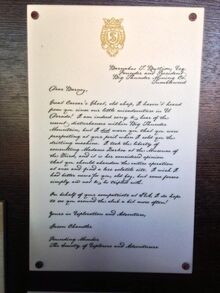 Barnabas T. Bullion, Esq.
Founder and President
Big Thunder Mining Co.
Tumbleweed
Dear Barney,
Great Caesar's Ghost, old chap, I haven't heard
from you since our little misadventure in El
Dorado! I am indeed sorry to hear of the
recent disturbances within Big Thunder
Mountain, but I did warn you that you were
prospecting at your peril when I sold you the
drilling machine. I took the liberty of
consulting Madame Zarkov at the Museum of
the Weird, and it is her considered opinion
that you should abandon the entire operation
at once and find a less volatile site. I wish I
had better news for you, old boy, but some forces
simply are not to be trifled with.
On behalf of your compatriots at S.E.A. I do hope
to see you around the club a bit more often!
Yours in Exploration and Adventure,
Jason Chandler
Founding Member
The Society of Explorers and Adventurers